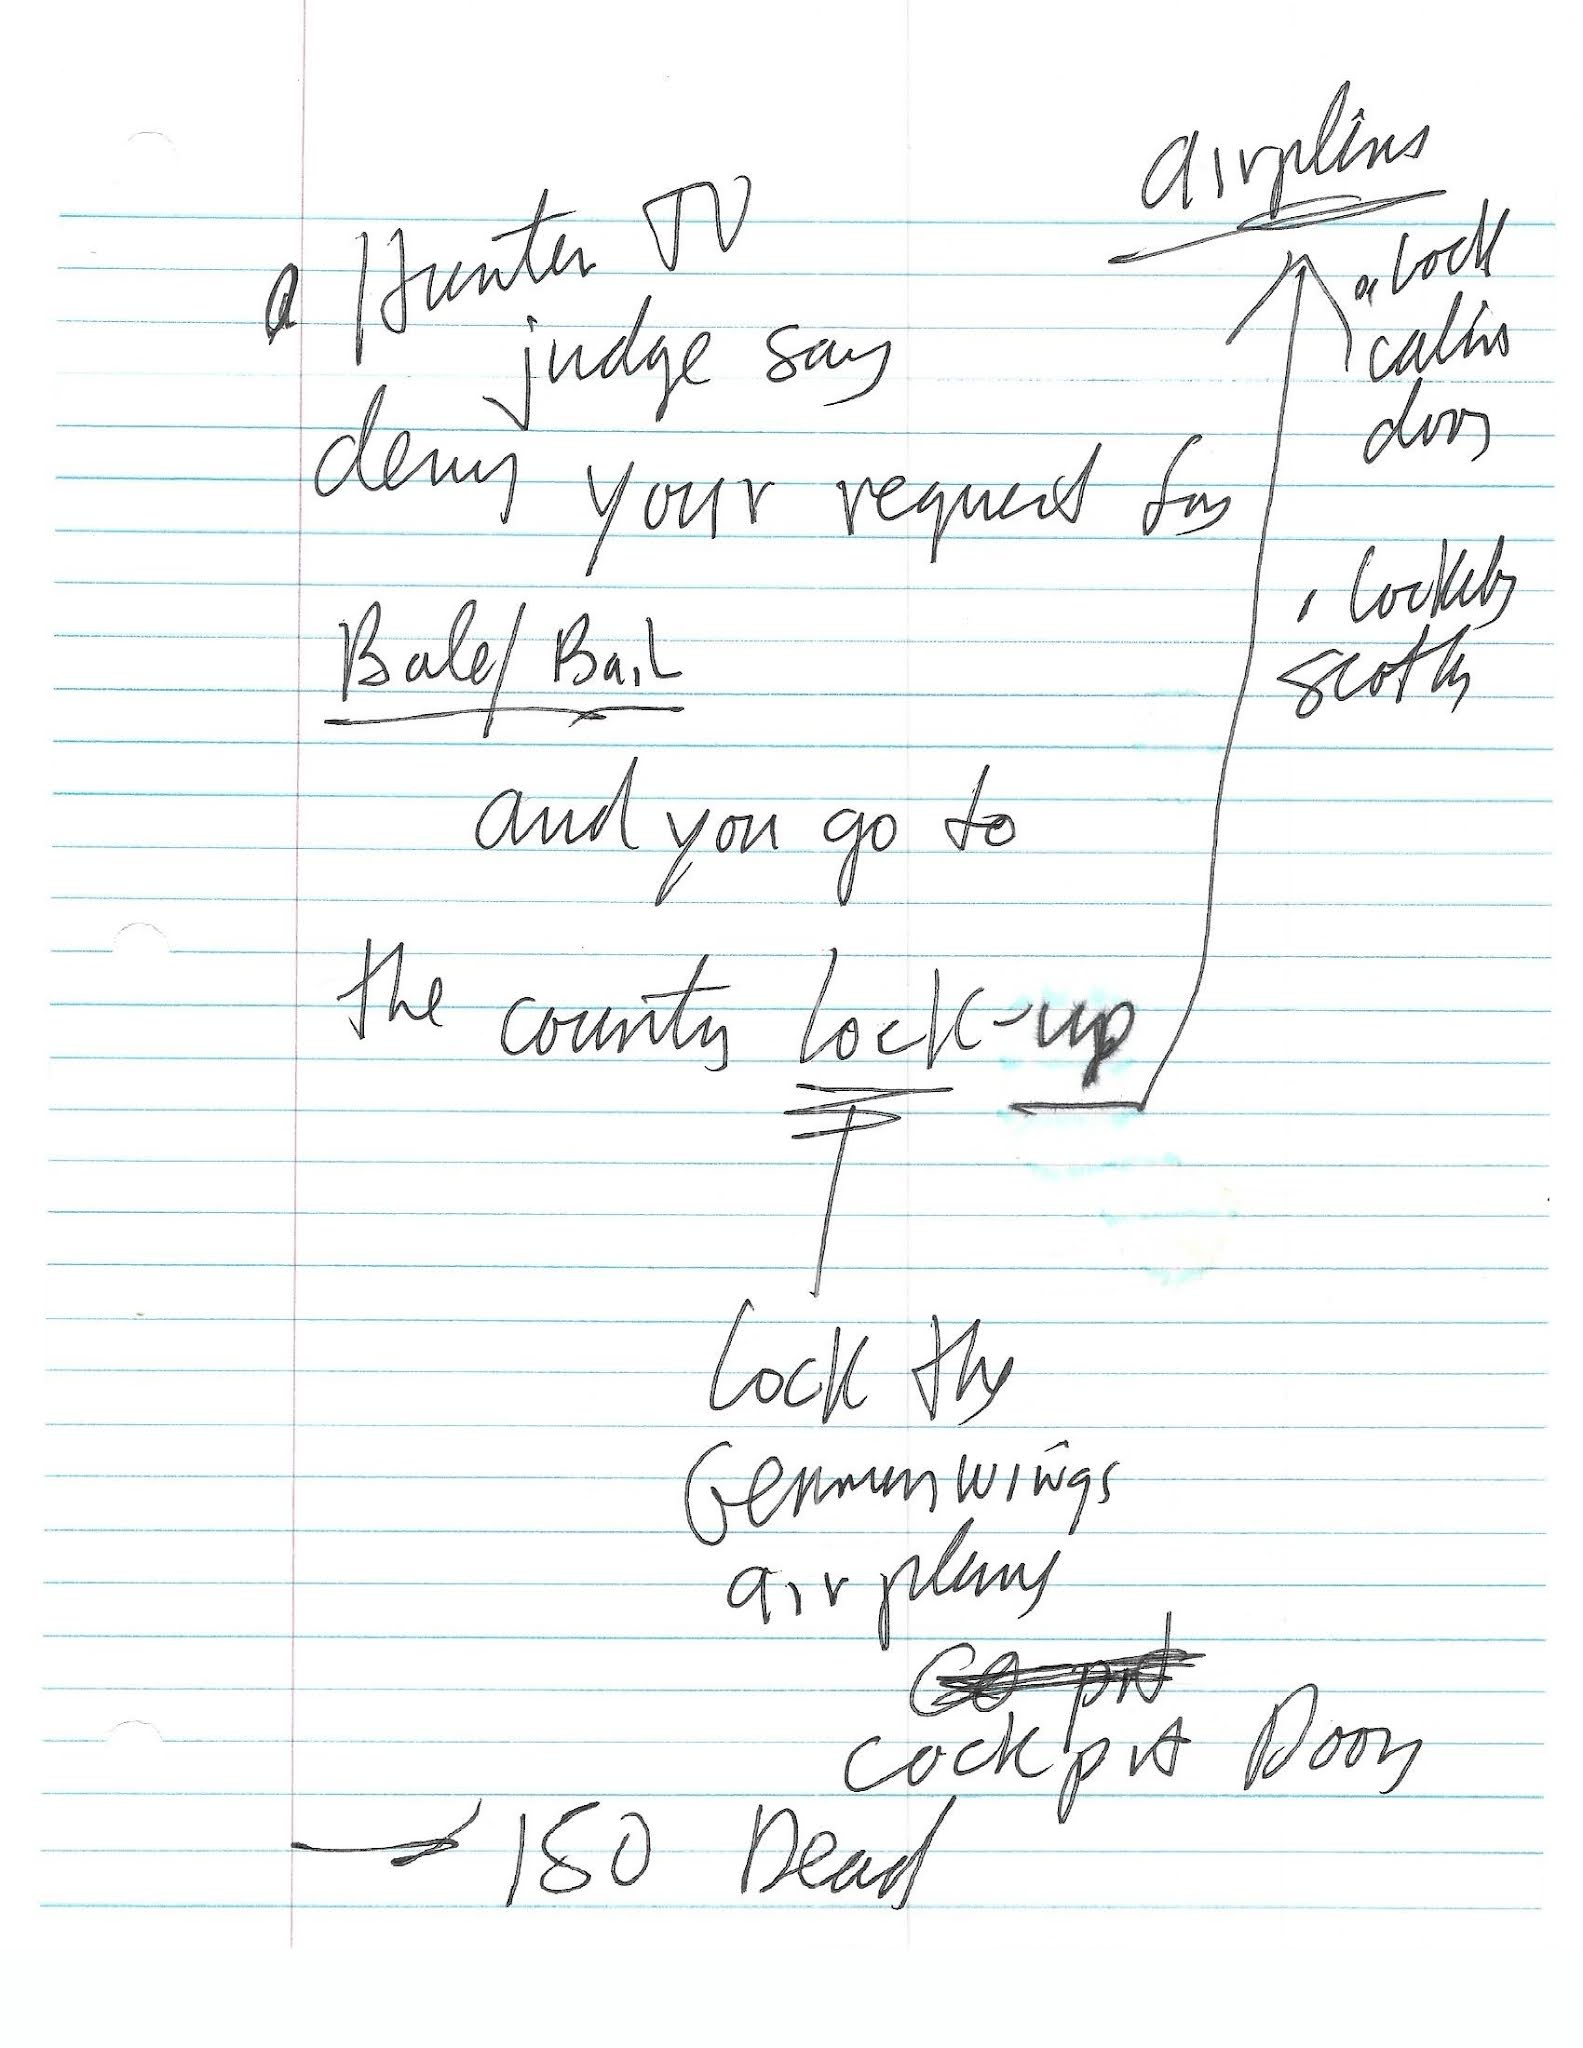 airplins
Hunter TV
judge say
deny your request for
Bale/Bail
and you go to
the county lock-up
lock
cabin
door
lockerby
scotly
lock the
Germunwings
airplane
cockpit Door
150 Dead